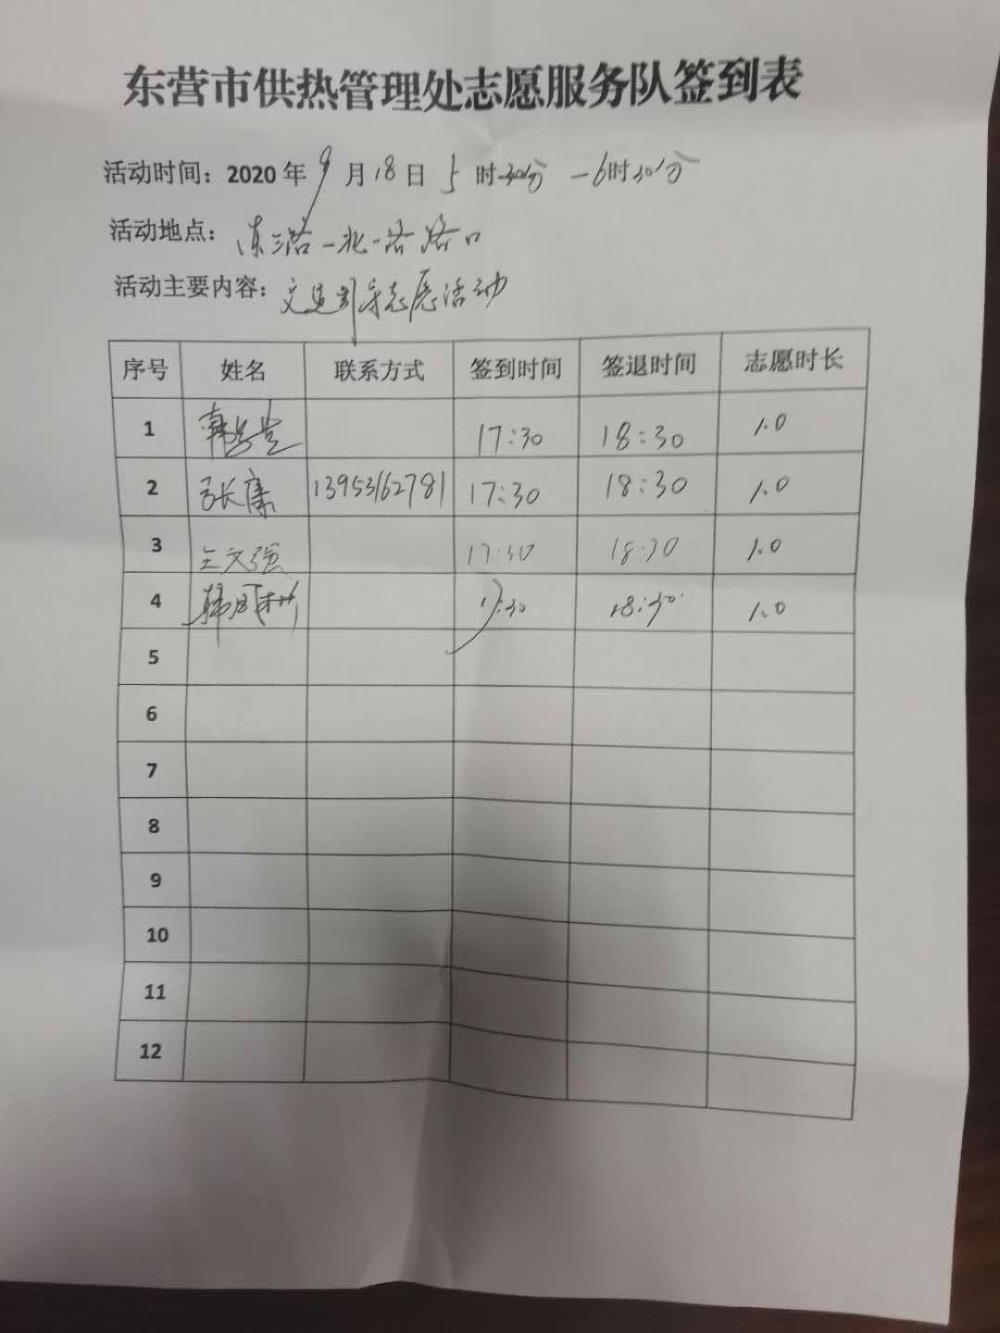 东营市供热管理处志愿服务队签到表
活动时间：2020年9月18日5时30分－6时30分
活动地点：东三路－北一路路口
活动主要内容：文明引导志愿活动
序号 姓名 联系方式 签到时间 签退时间 志愿时长
1 17:30 18:30 1.0
2 张康 13953162781 17:30 18:30 1.0
3 王文强 17:30 18:30 1.0
4 17:30 18:30 1.0
5
6
7
8
9
10
11
12